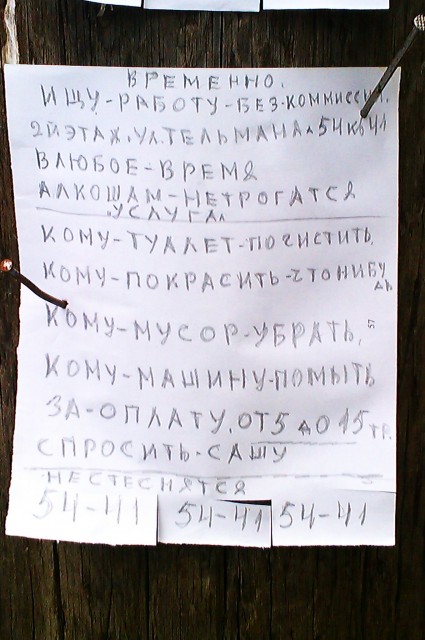 ВРЕМЕННО.
ИЩУ-РАБОТУ-БЕЗ-КОММИССИИ.
2ЙЭТАЖ.УЛ.ТЕЛЬМАНА 54 КВ 41
ВЛЮБОЕ-ВРЕМЯ
АЛКОШАМ-НЕТРОГАТСЯ
УСЛУГА
КОМУ-ТУАЛЕТ-ПОЧИСТИТЬ.
КОМУ-ПОКРАСИТЬ-ЧТОНИБУ
ДЬ
КОМУ-МУСОР-УБРАТЬ.
КОМУ-МАШИНУ-ПОМЫТЬ
ЗА-ОПЛАТУ.ОТ 5 ДО 15 ТР.
СПРОСИТЬ-САШУ
НЕСТЕСНЯТСЯ
54-41 54-41 54-41